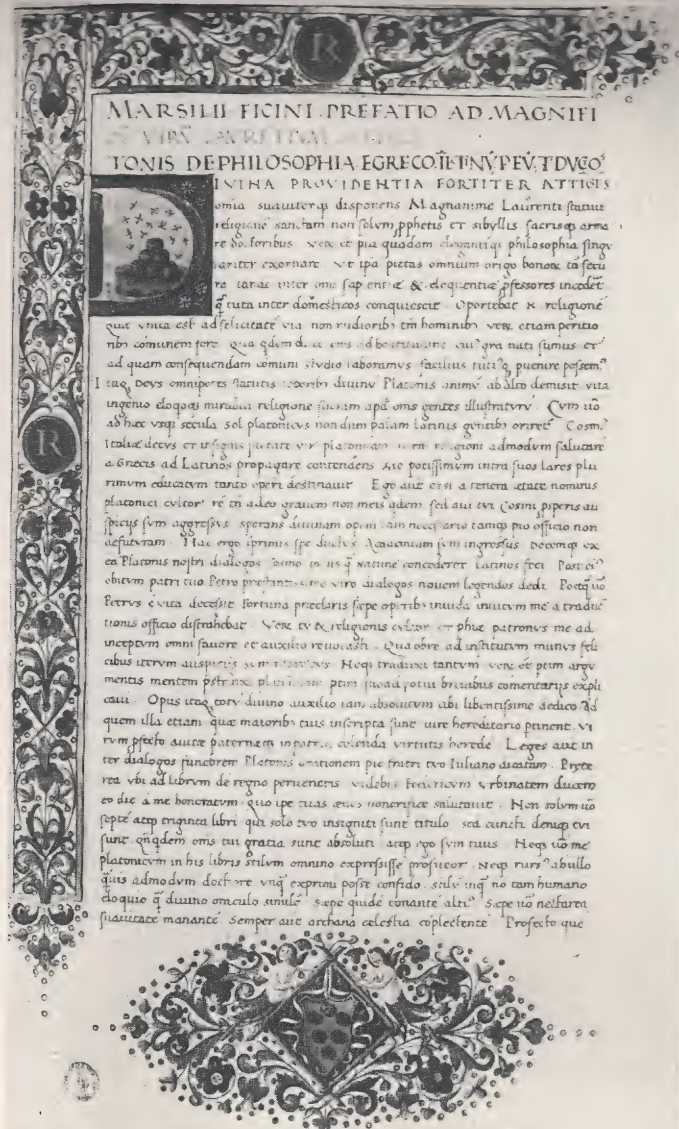 MARSILII FICINI PREFATIO AD MAGNIFI
TONIS DE PHILOSOPHIA EGRECO
DIVINA PROVIDENTIA FORTITER ATTIGIS
omia suaviterq disponens Magnanime Laurenti statuit
religione sanctam non solum pphetis et sibyllis sacrisq arma
re doctoribus vere et pia quadam elegantiq philosophia singu
lariter exornare Vt ipa pietas omnium origo bonor tā secu
ra inter omīs sapientiæ & eloquentiæ pfessores incedet
q̄ tuta inter domesticos conquiescit Oportebat n religionē
Quæ unica est ad felicitatē via non rudiorib tm̄ hominibus vere etiam peritio
rib comunem fore Qua qdem d gra nati sumus et
ad quam consequendam comuni studio laboramus facilius puenire possem
Itaq Deus omnipotēs statutis diuinū Platonis animū ab alto demisit vita
ingenio eloquioq mirabili religione sacram apd omīs gentes illustraturū Cum uō
ad hæc usq secula sol platonicus nondum palam latinis gentib oriret Cosm
Italiæ decus et insignis pietate vir religioni admodum salutarē
a Græcis ad Latinos propagare contendens me potissimum intra suos lares plu
rimum educatum tanto operi destinauit Ego aut etsi a tenera ætate nominis
platonici cultor rē tn̄ adeo grauem non meis qdem sed aui tui Cosmi psperis au
spiciis sum aggressus sperans diuinam opem tam necessario tamq pio officio non
defuturam Hac ergo īprimis spe ductus Academiam sum ingressus Decemq ex
ea Platonis nostri dialogos Cosmo natūræ concederet latinos feci Post ei
obitum patri tuo Petro viro dialogos nouem legendos dedi Postq uō
Petrus e vita decessit Fortuna præclaris sæpe opib inuida inuitum me a traduc
tionis officio distrahebat Vere tu & religionis cultor et phiæ patronus me ad
inceptum omni fauore et auxilio reuocasti Quaobre ad institutum munus feli
cibus iterum auspiciis sum Neq traduxi tantum vere et ptim argu
mentis mentem ptim quoad potui breuibus comentariis expli
caui Opus itaq totū diuino auxilio iam absolutum tibi libentissime dedico Ad
quem illa etiam quæ maioribus tuis inscripta sunt iure hereditario ptinent Vi
rum pfecto auitæ paternæq in patria colenda virtutis herede Leges aut in
ter dialogos funebrem Platonis orationem pie fratri tuo Iuliano dicatam Præte
rea ubi ad librum de regno perueneris videbis Federicum urbinatem ducem
eo die a me honoratum quo ipe tuas ædes honorificæ salutauit Non solum uō
septē atq triginta libri qui solo tuo insigniti sunt titulo sed cuncti deniq tui
sunt qn̄qdem omīs tui gratia sunt absoluti atq ego sum tuus Neq uō me
platonicum in his libris stilum omnino expressisse profiteor Neq rurs ab ullo
quis admodum doctiore unq exprimi posse confido stilū inq nō tam humano
eloquio q diuino oraculo similē sæpe quidē tonantē alti Sæpe uō nectarea
suauitate manantē semper aut archana celestia coplectentē Profecto que